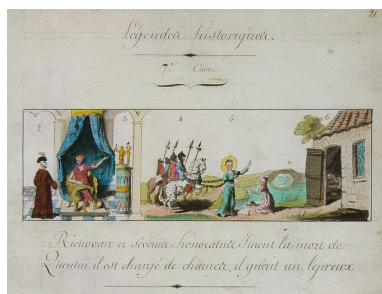 21
Légendes historiques.
7e Case.
2 3 4 5 6
Rictiovare et Sévérus honoratus jurent la mort de
Quentin il est chargé de chaines, il guérit un lépreux